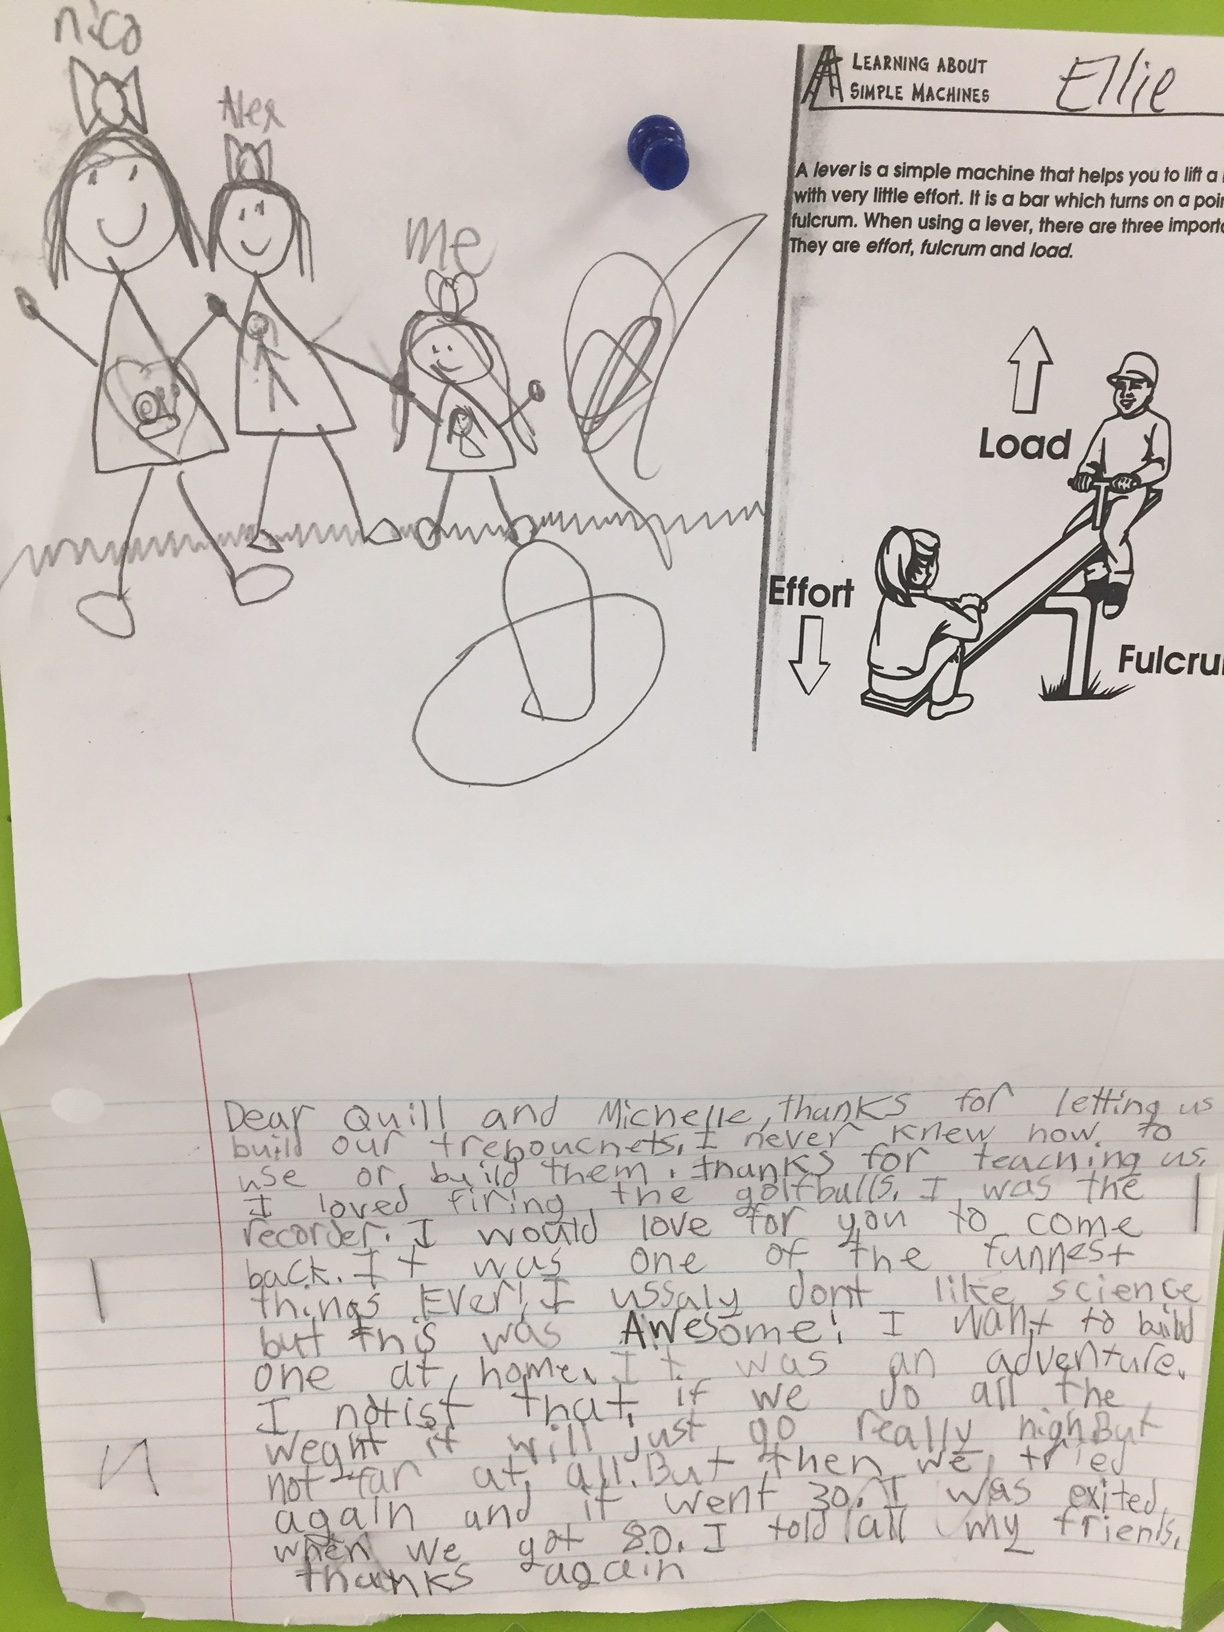 nico
Alex
me
LEARNING ABOUT
SIMPLE MACHINES
Ellie
A lever is a simple machine that helps you to lift a
with very little effort. It is a bar which turns on a poin
fulcrum. When using a lever, there are three importa
They are effort, fulcrum and load.
Load
Effort
Fulcru
Dear Quill and Michelle, thanks for letting us
build our trebouchets. I never knew how to
use or build them. thanks for teaching us.
I loved firing the golfballs. I was the
recorder. I would love for you to come
back. It was one of the funnest
things Ever! I ussaly dont like science
but this was AWesome! I want to build
one at home. It was an adventure.
I notist that if we do all the
weght it will just go really high But
not far at all. But then we tried
again and it went 30. I was exited
when we got 80. I told all my friends.
thanks again